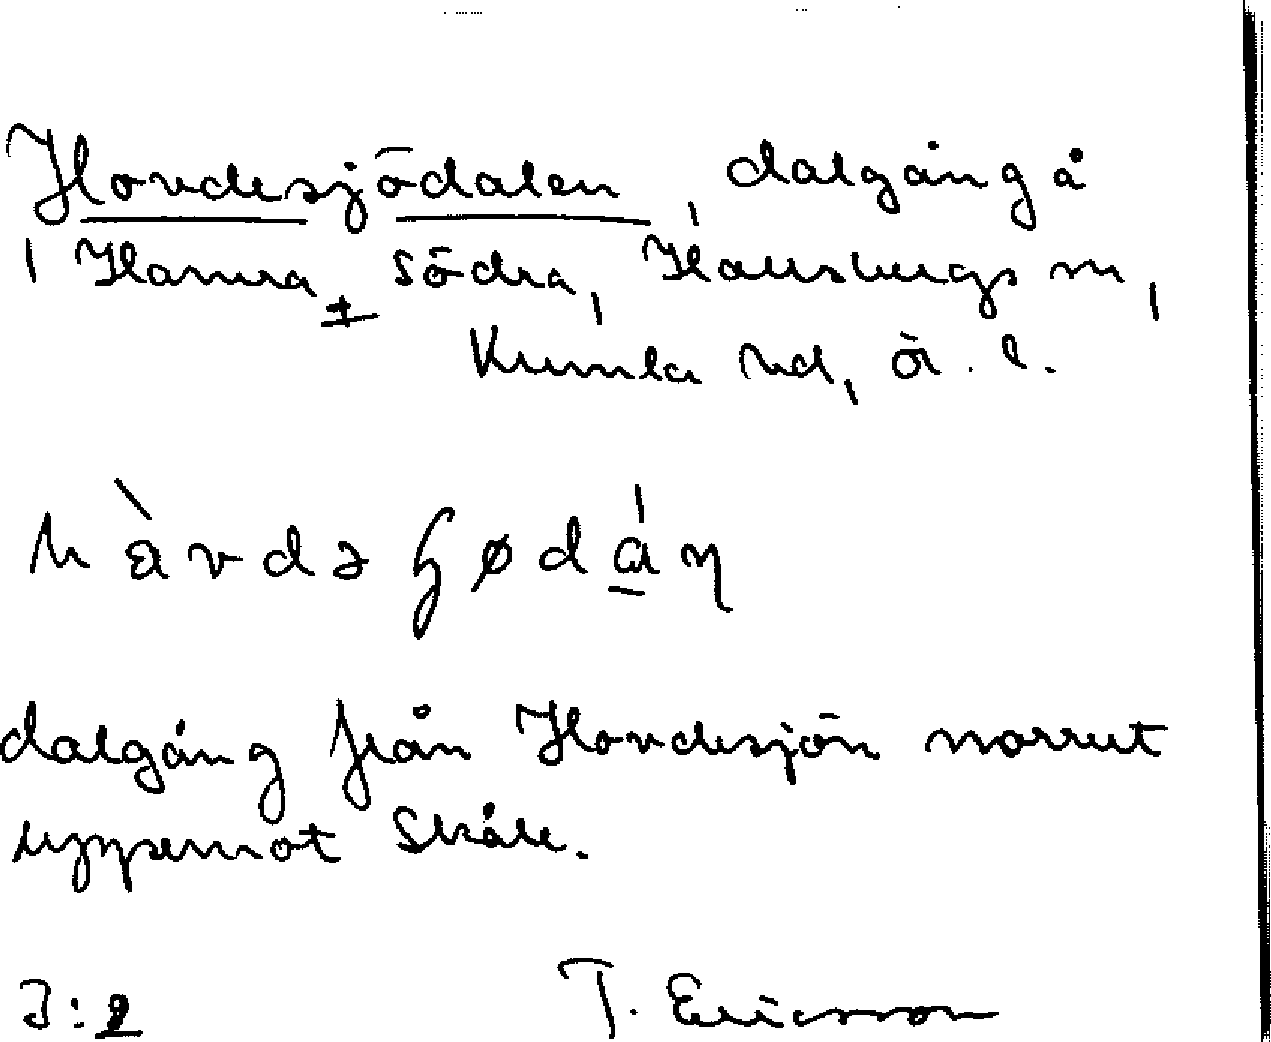 Hovdesjödalen, dalgång å
Hamra ± södra, Hallsbergs sn,
Kumla hd, Ör. l.
h à v d ə ɧ ø d á n
dalgång från Hovdesjön norrut
uppemot Skåle.
J:2 T. Ericsson